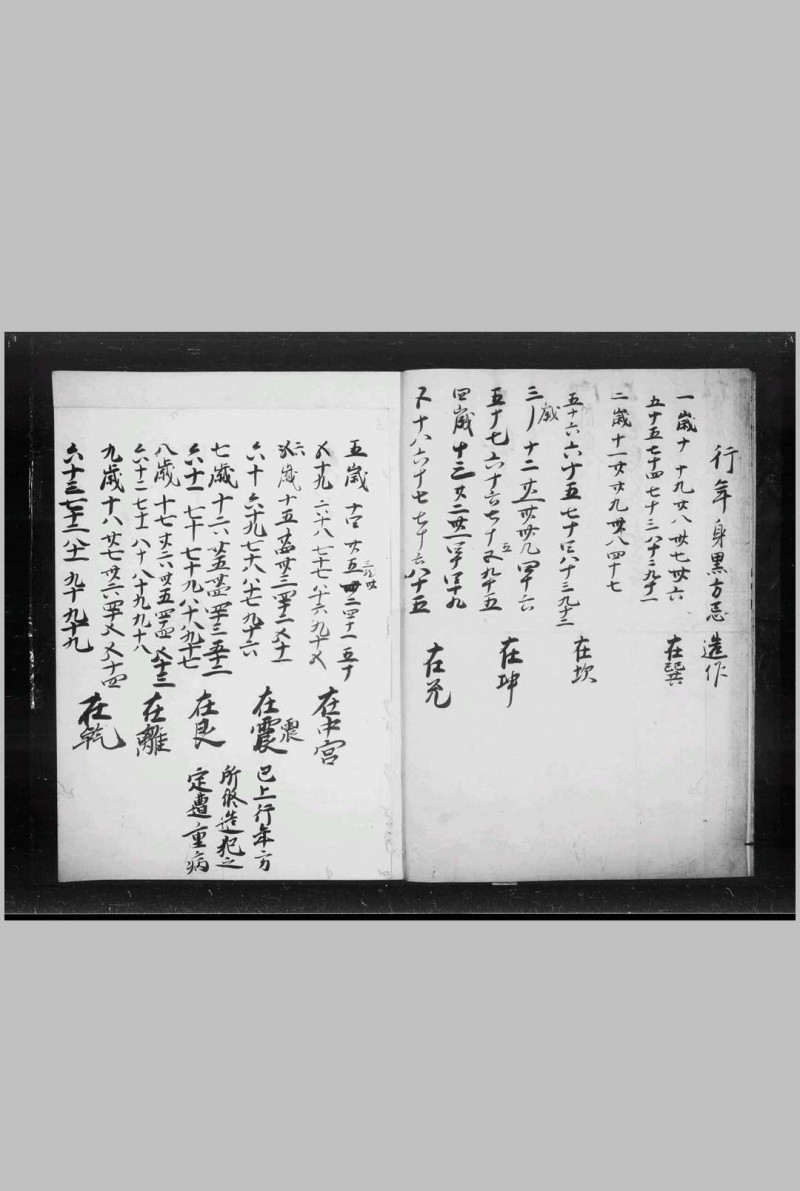 行年身黒方忌 造作
一歳十 十九 廿八 卅七 卌六 在巽
五十五 七十四 七十三 八十二 九十一
二歳十一 廿 廿九 卅八 四十七
五十六 六十五 七十四 八十三 九十二 在坎
三歳 十二 廿一 卅 卅九 四十六
五十七 六十六 七十五 九十五 在坤
四歳十三 廿二 卅一 四十 四十九
五十八 六十七 七十六 八十五 在兌
五歳 十四 廿五 卌二 四十一 五十
五十九 六十八 七十七 八十六 九十五 在中宮
六歳十五 廿四 卅三 四十二 五十一
六十 六十九 七十八 八十七 九十六 在震 震 已上行年方
七歳十六 廿五 卅四 四十三 五十二 所修造犯之
六十一 七十 七十九 八十八 九十七 在艮 定遭重病
八歳十七 廿六 卅五 四十四 五十三
六十二 七十一 八十 八十九 九十八 在離
九歳十八 廿七 卅六 四十五 五十四
六十三 七十二 八十一 九十 九十九 在乾